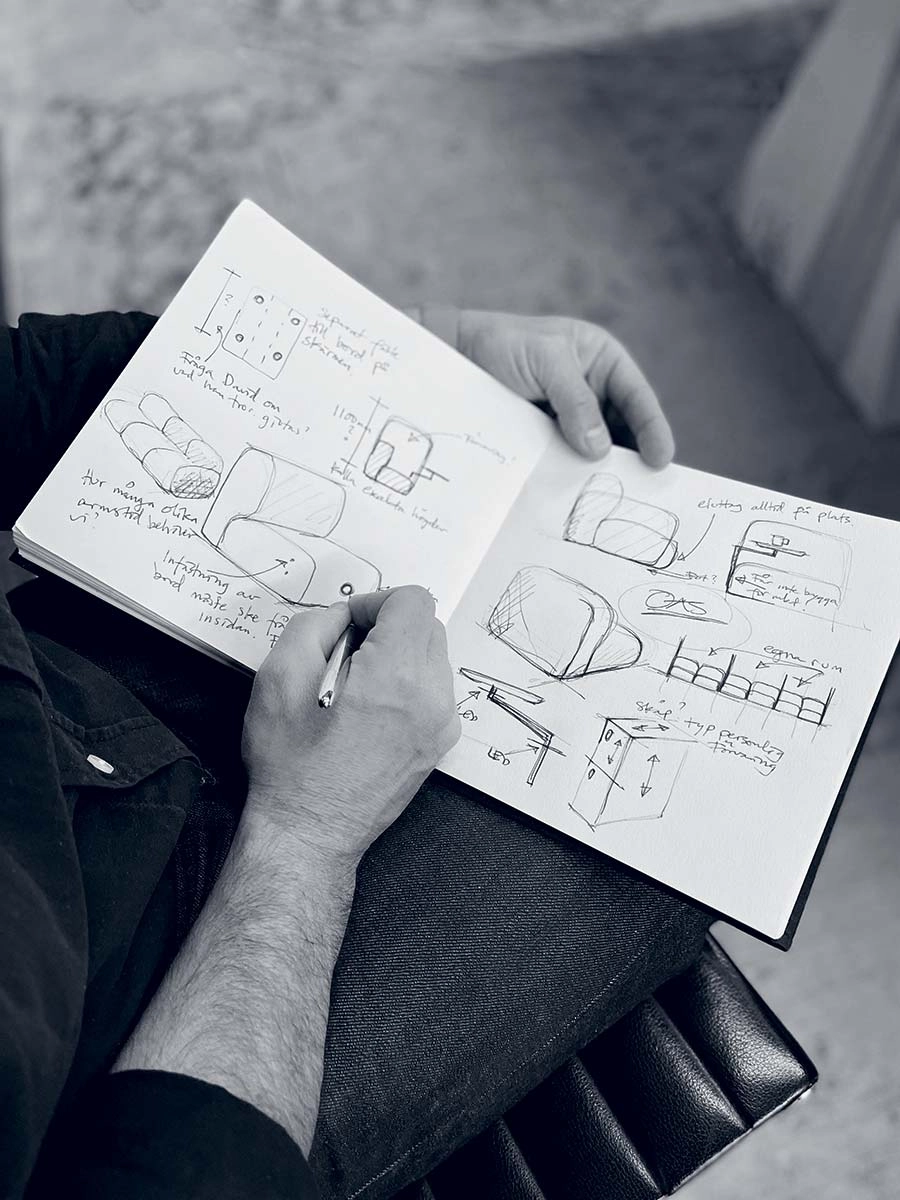 ?
Separat
till bord på
skärmen.
Fråga David om
vad han tror.
1100mm
?
Kolla exakta höjder
Hur många olika
armstöd behöver
vi?
Infästning av
bord måste ske från
insidan.
eluttag alltid på plats.
Får inte bygga
för mkt!
egna rum
LED
LED
Skåp? typ personlig
förvaring